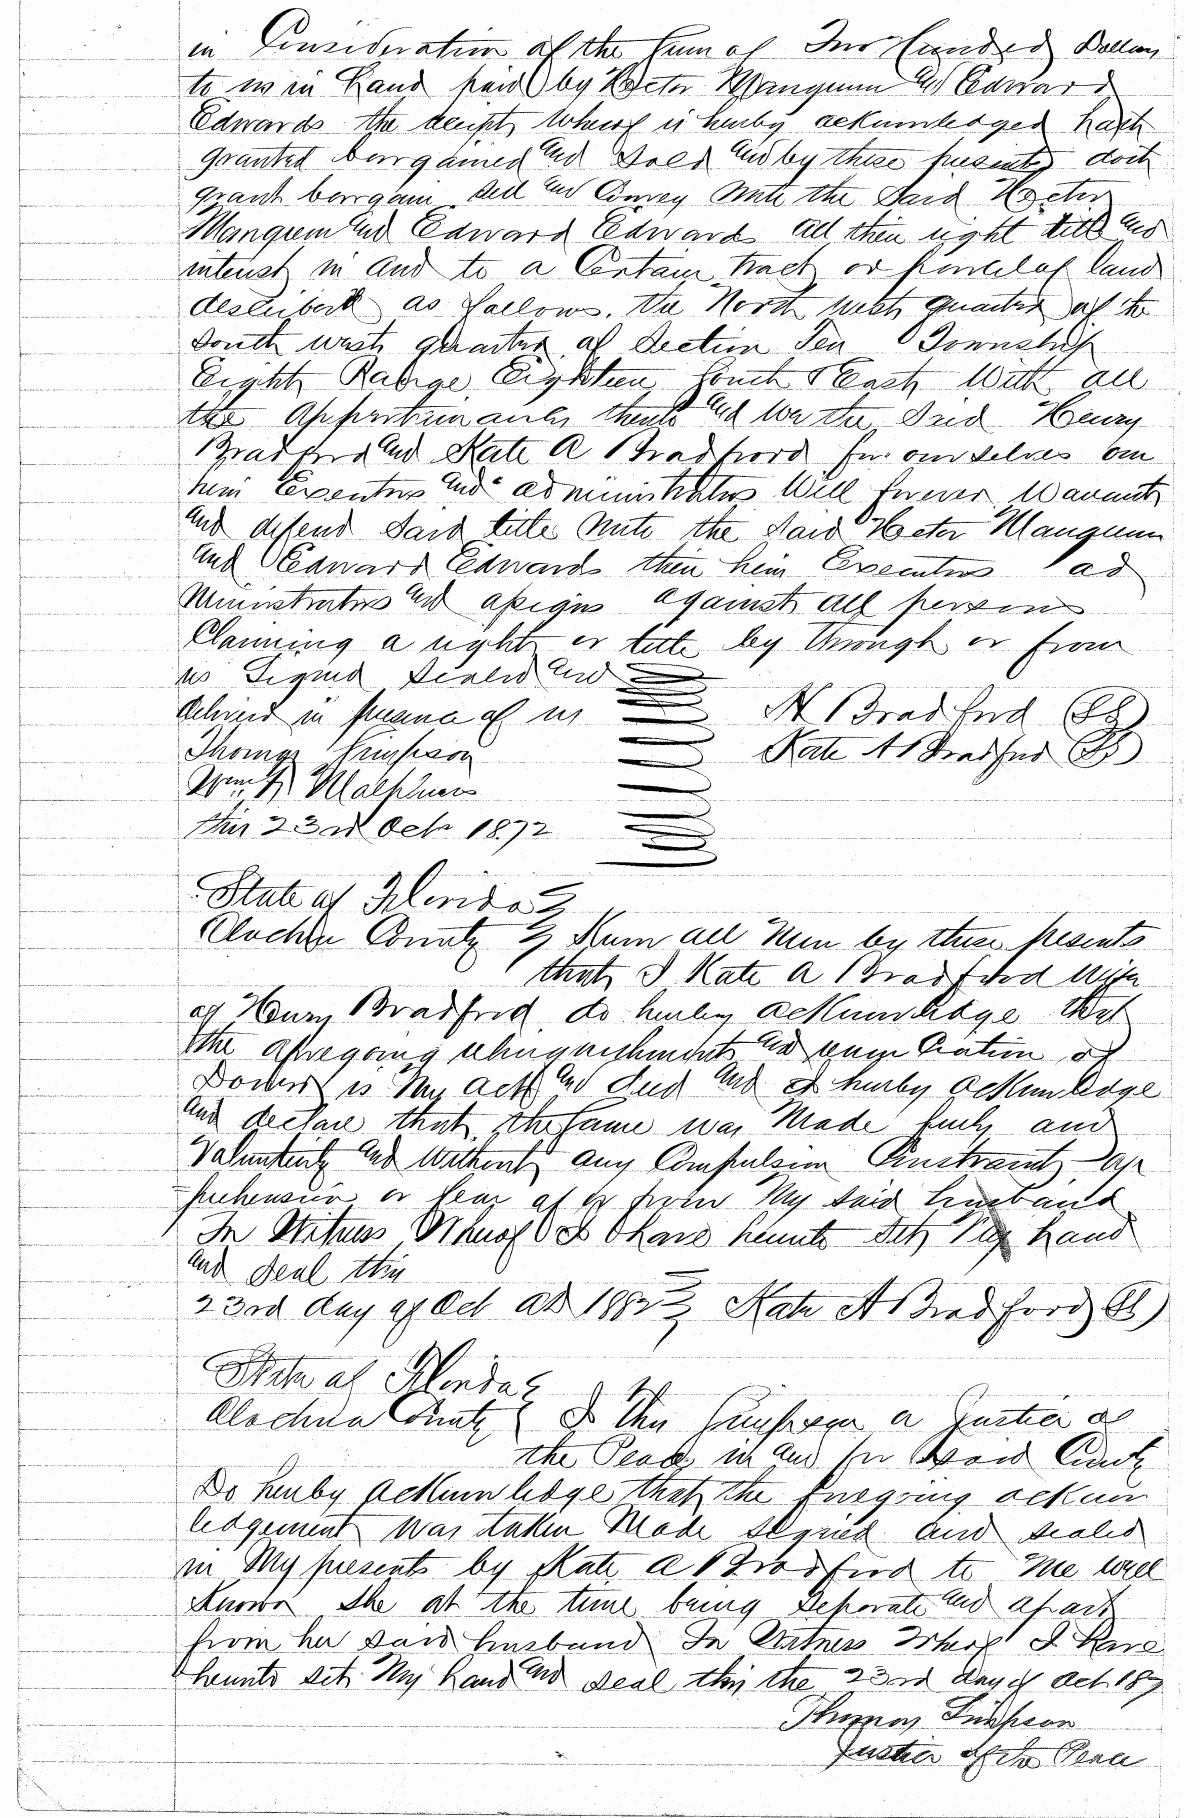 in Consideration of the Sum of Two Hundred Dollars
to us in hand paid by Hector Mangum and Edward
Edwards the receipt whereof is hereby acknowledged hath
granted barrgained and Sold and by these presents doth
grant barrgain sell and Convey unto the Said Hector
Mangum and Edward Edwards all their right title and
interest in and to a Certain tract or parcel of land
described as follows. the North west quarter of the
South west quarter of Section Ten Township
Eight Range Eighteen South & East With all
the thereto and we the Said Henry
Bradford and Kate A Bradford for ourselves our
heirs Executors and administrators Will forever Warrant
and defend Said title unto the Said Hector Mangum
and Edward Edwards their heirs Executors ad
ministrators and assigns against all persons
Claiming a right or title by through or from
us Signed Sealed and
delivered in presence of us H Bradford (LS)
Thomas Simpson Kate A Bradford (LS)
Wm
this 23rd Oct 1872
State of Florida
Alachua County Know all Men by these presents
that I Kate A Bradford Wife
of Henry Bradford do hereby acknowledge that
the aforegoing relinquishment and renunciation of
Dower is My act and deed and I hereby acknowledge
and declare that the Same was Made freely and
Voluntarily and Without any Compulsion Constraint ap
prehension or fear of or from My said husband
In Witness Whereof I have hereunto Set My hand
and Seal this
23rd day of Oct AD Kate A Bradford (LS)
State of Florida
Alachua County I Simpson a Justice of
the Peace in and for Said County
Do hereby acknowledge that the foregoing acknow
ledgement was taken Made signed and sealed
in My presents by Kate A Bradford to Me well
Known She at the time being Separate and apart
from her said husband In Witness Whereof I have
hereunto set My hand and Seal this the 23rd day of Oct 187
Thomas Simpson
Justice of the Peace